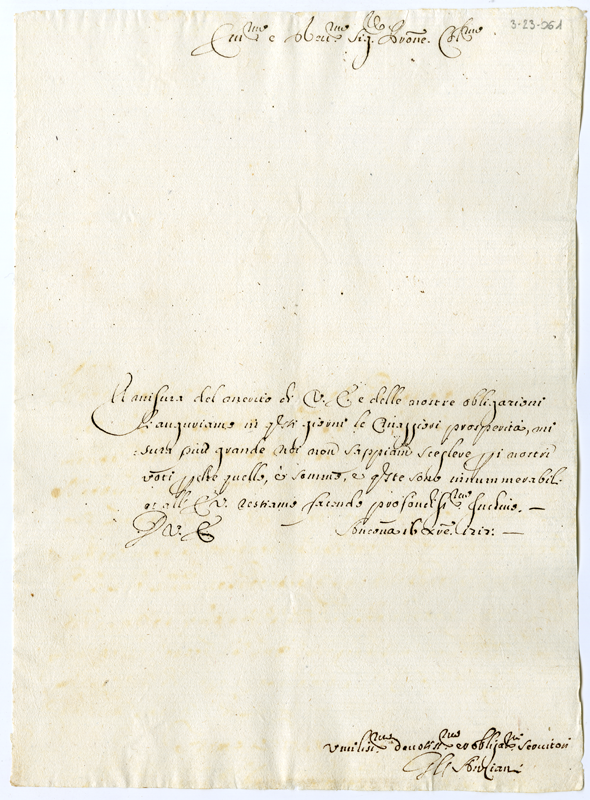 3-23-061
Em.mo e Rev.mo Sig. Prone. Col.mo
A misura del merito di V. E. e delle nostre obligazioni
l'auguriamo in q.sti giorni le maggiori prosperità, mi
sura più grande noi non sappiam scegliere pi nostri
voti perche quelle, è somme, e q.ste sono innumerabili
et all' E. V. restiamo facendo profondiss.mo Inchino. —
D. V. E.
Ancona 16 Xre.
Umiliss.mi devotiss.mi et obligat.mi Servitori
Gli Anziani